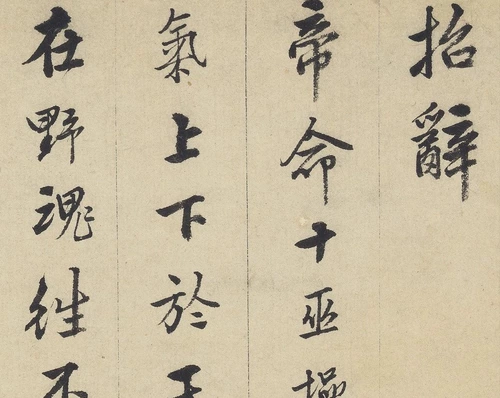 招辭
帝命十巫
氣上下於
在野魂往不